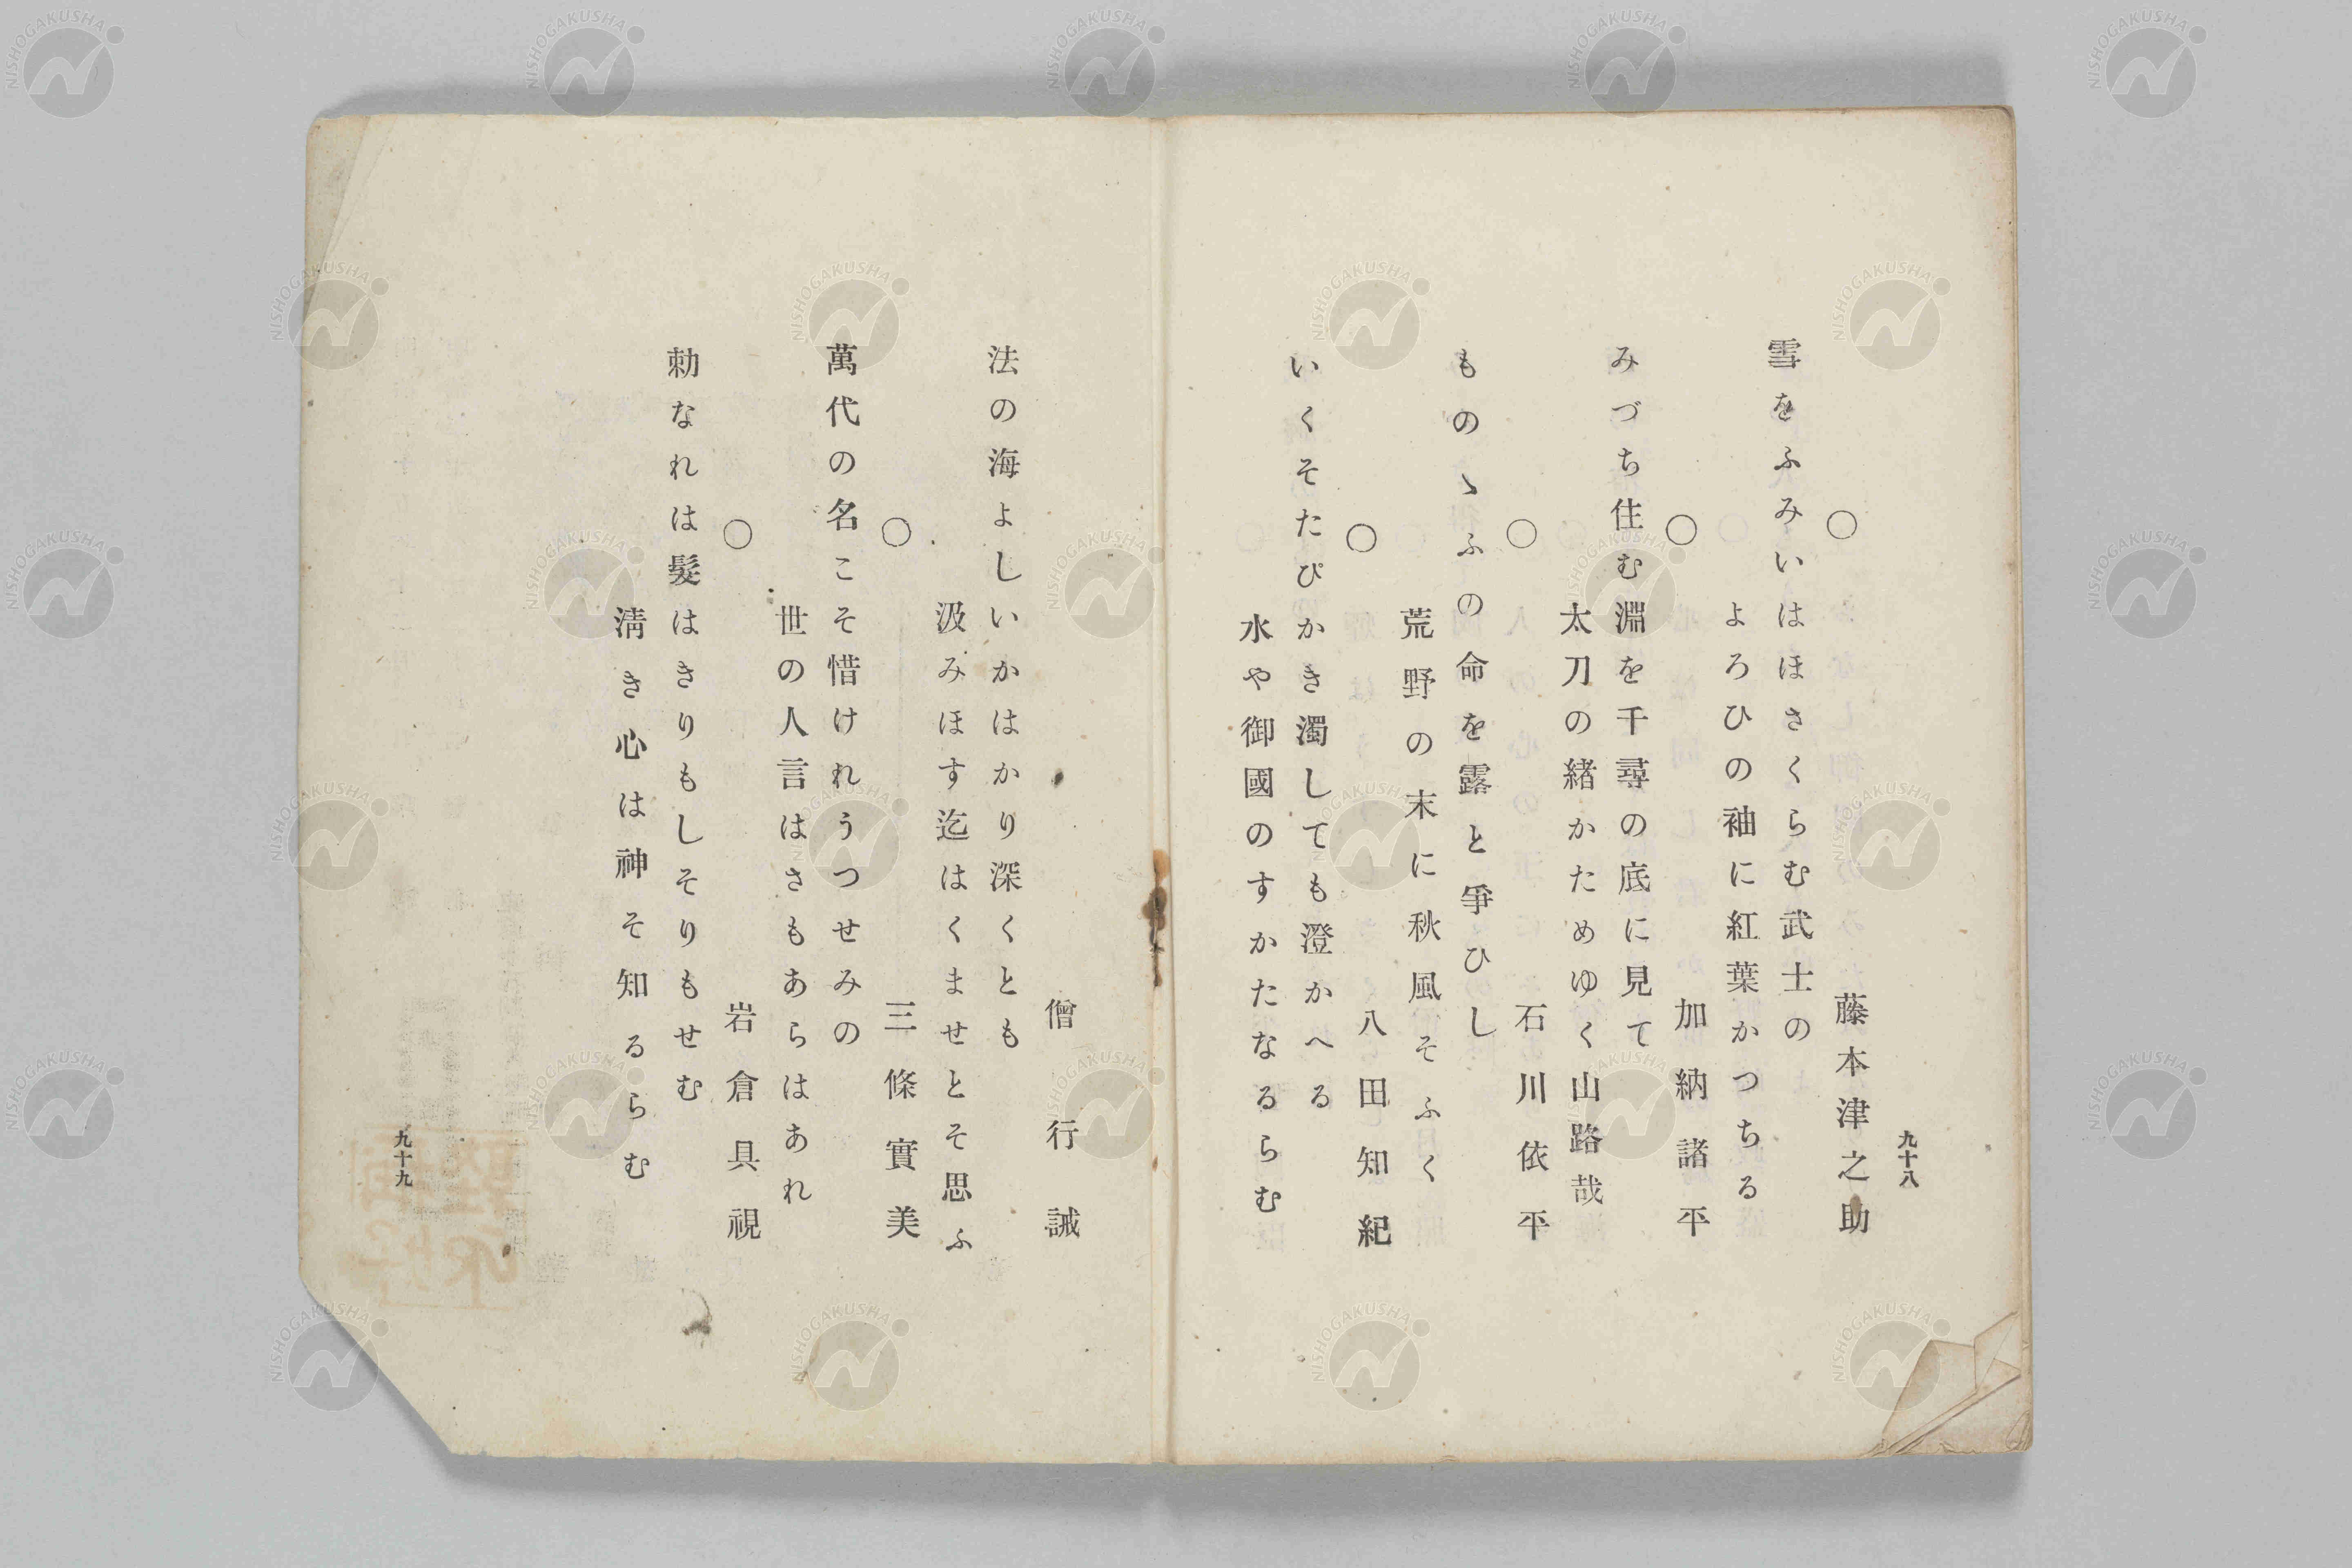 九十八
○ 藤本津之助
雪をふみいはほさくらむ武士の
よろひの袖に紅葉かつちる
○ 加納諸平
みづち住む淵を千尋の底に見て
太刀の緒かためゆく山路哉
○ 石川依平
ものゝふの命を露と爭ひし
荒野の末に秋風そふく
○ 八田知紀
いくそたびかき濁しても澄かへる
水や御國のすかたなるらむ
僧行誡
法の海よしいかはかり深くとも
汲みほす迄はくませとそ思ふ
○ 三條實美
萬代の名こそ惜けれうつせみの
世の人言はさもあらはあれ
○ 岩倉具視
勅なれは髮はきりもしそりもせむ
淸き心は神そ知るらむ
九十九
NISHOGAKUSHA